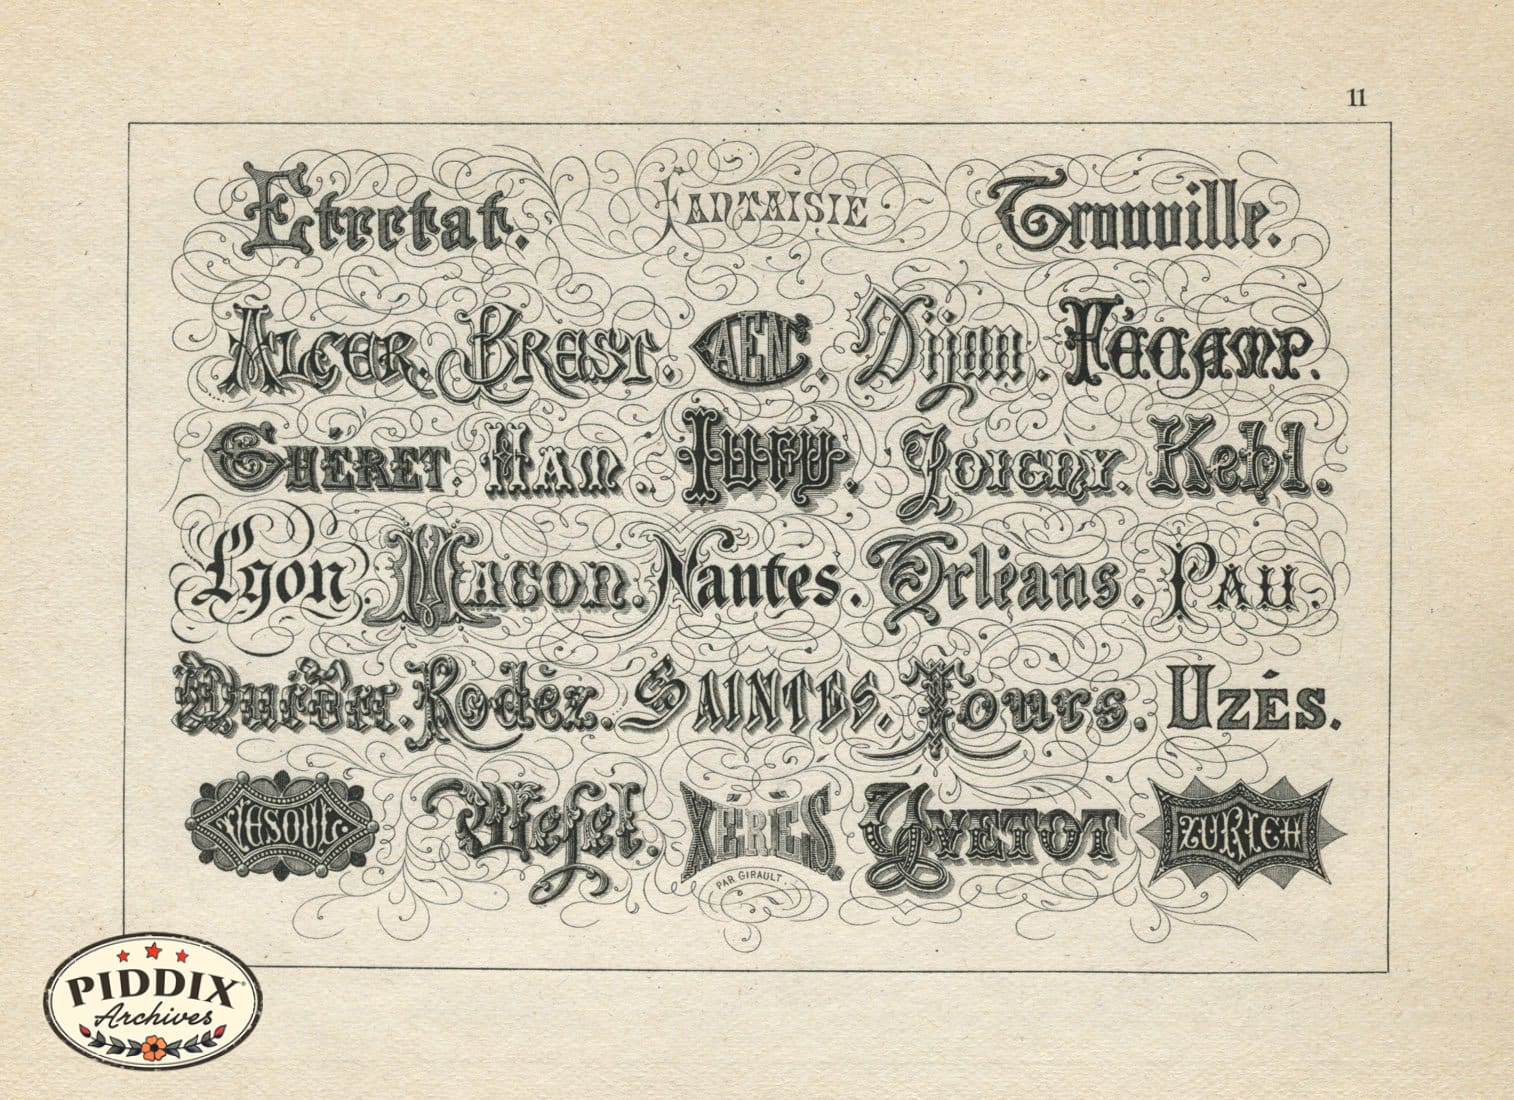 11
Etretat. FANTAISIE Trouville.
ALGER. BREST. CAEN. Dijon. FÉCAMP.
GUÉRET. HAM. JOIGNY. Kehl.
Lyon. MACON. Nantes. Orléans. PAU.
Rodéz. SAINTES. Tours. UZÉS.
VESOUL. Wesel. XÉRÈS. YVETOT ZURICH
PAR GIRAULT.
PIDDIX
Archives